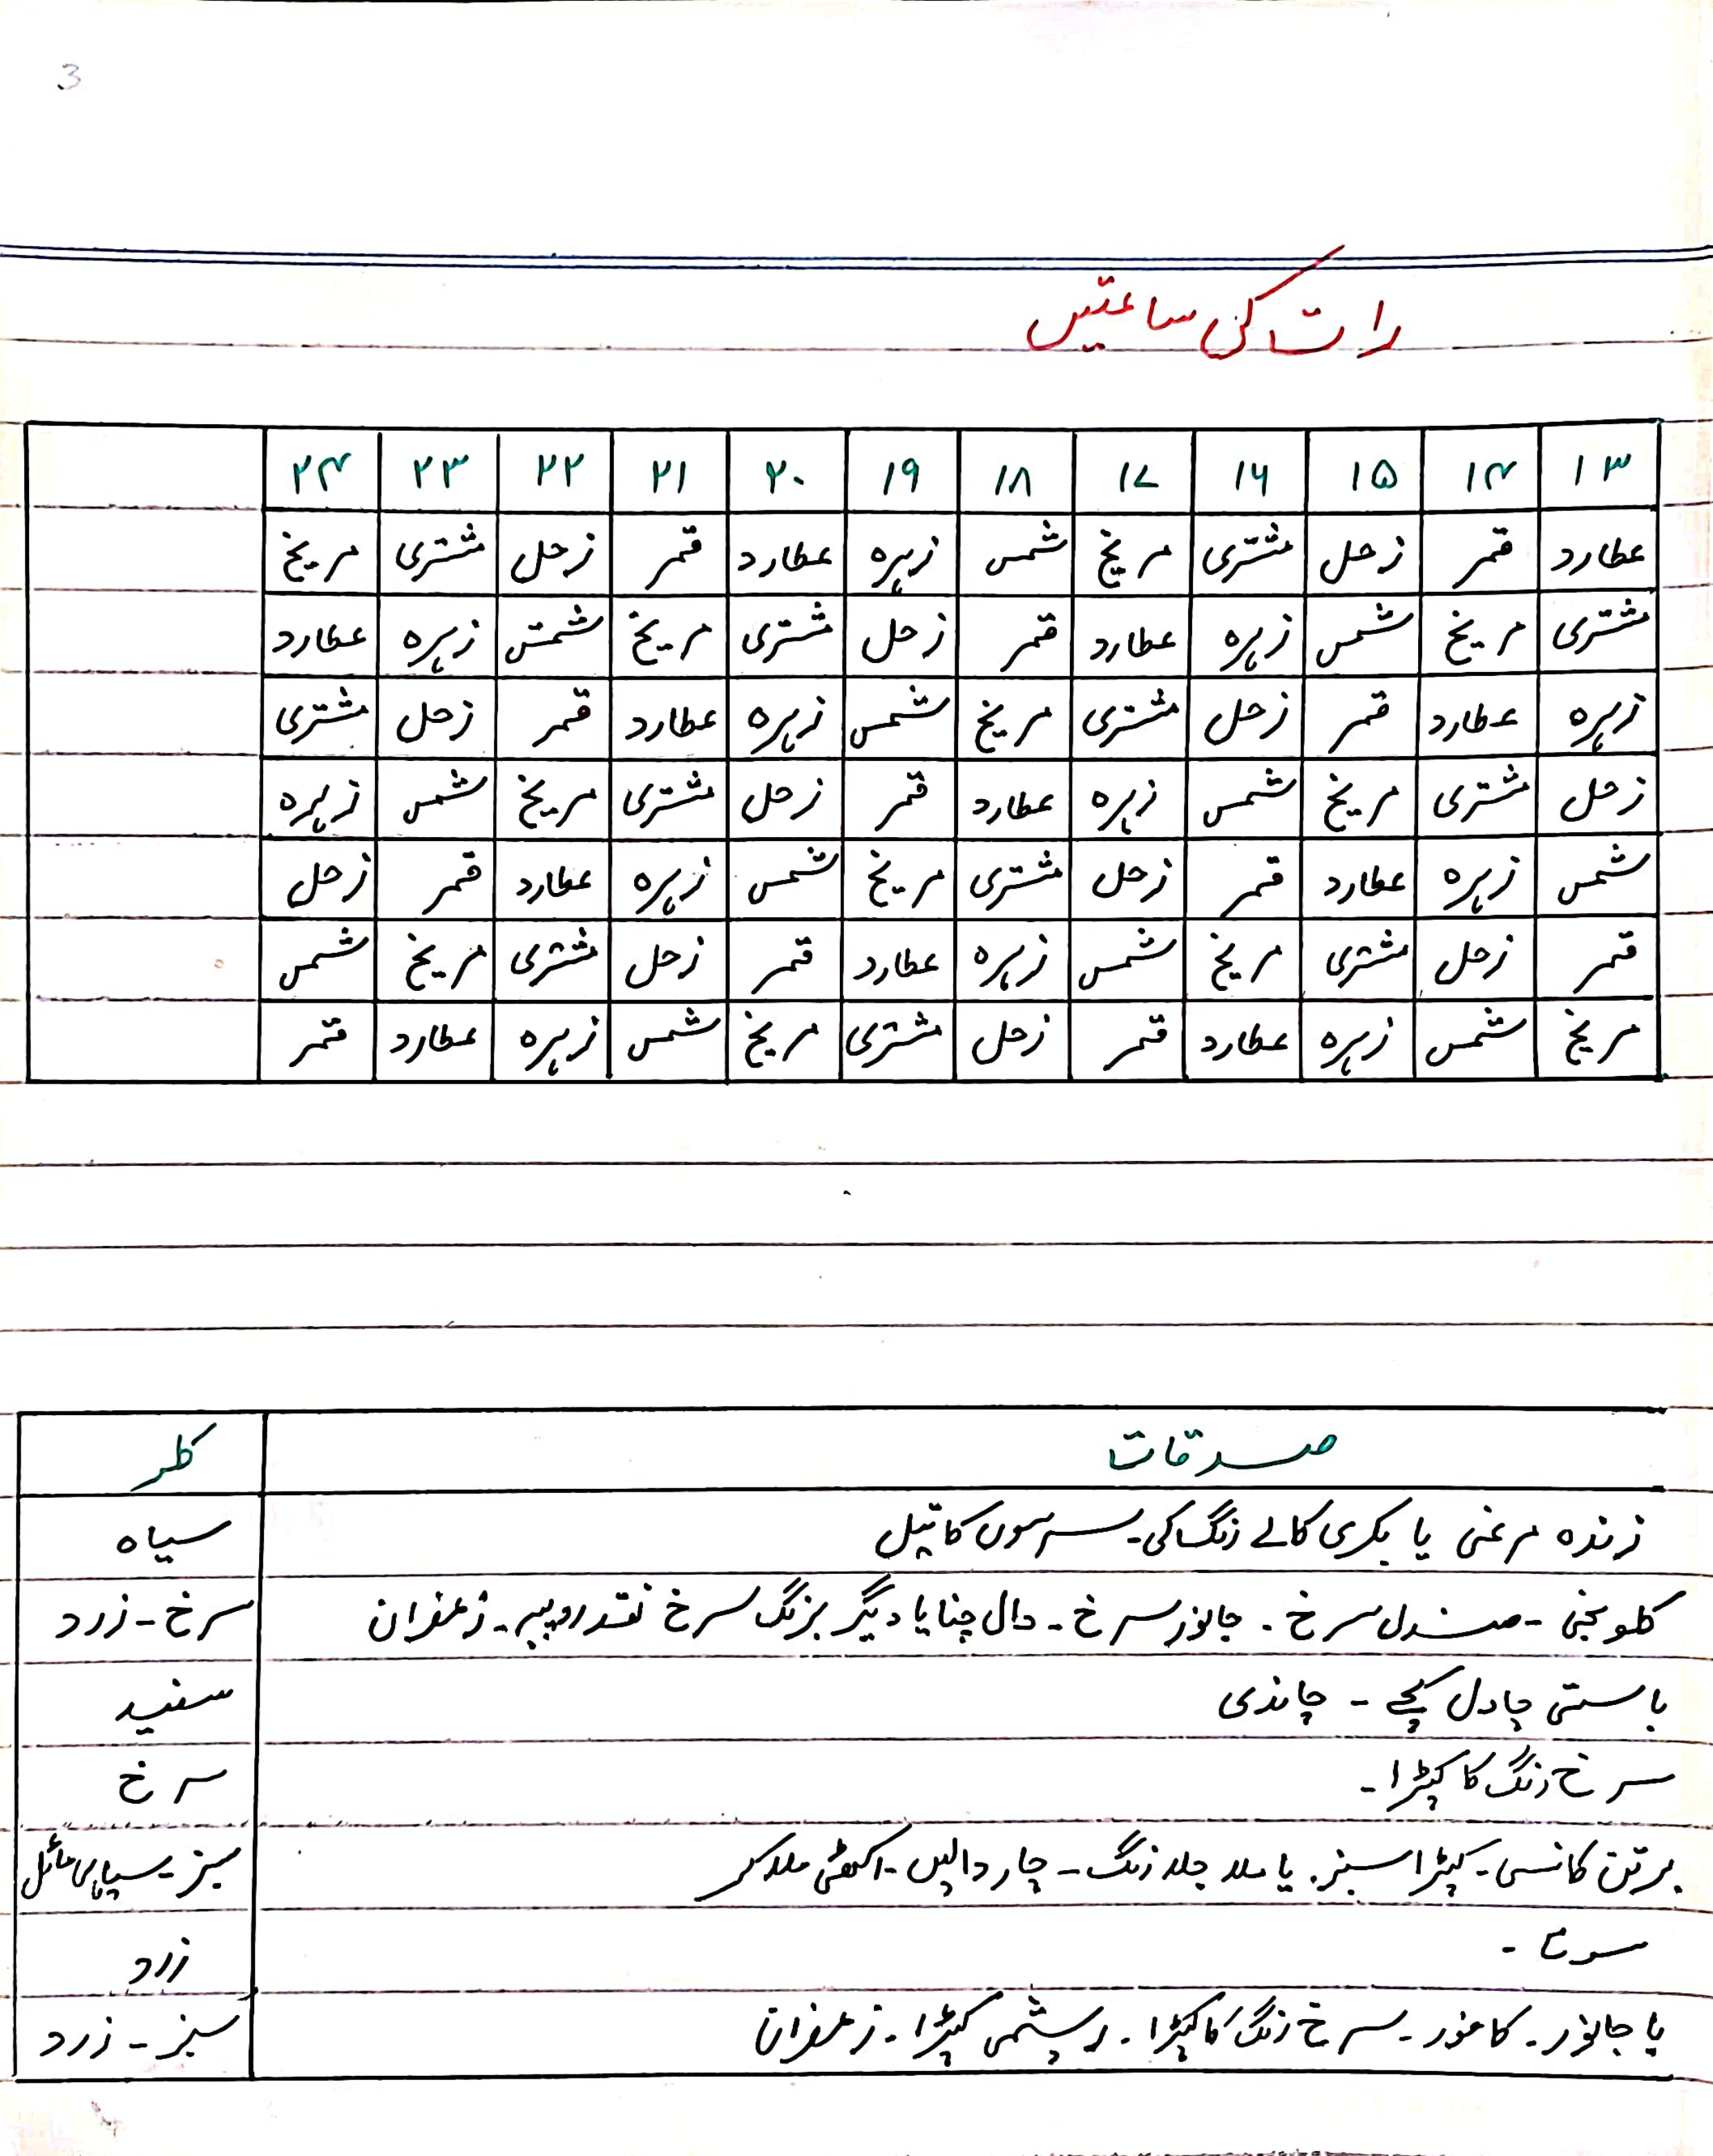 3
رات کی ساعتیں
۱۳ ۱۴ ۱۵ ۱۶ ۱۷ ۱۸ ۱۹ ۲۰ ۲۱ ۲۲ ۲۳ ۲۴
عطارد قمر زحل مشتری مریخ شمس زہرہ عطارد قمر زحل مشتری مریخ
مشتری مریخ شمس زہرہ عطارد قمر زحل مشتری مریخ شمس زہرہ عطارد
زہرہ عطارد قمر زحل مشتری مریخ شمس زہرہ عطارد قمر زحل مشتری
زحل مشتری مریخ شمس زہرہ عطارد قمر زحل مشتری مریخ شمس زہرہ
شمس زہرہ عطارد قمر زحل مشتری مریخ شمس زہرہ عطارد قمر زحل
قمر زحل مشتری مریخ شمس زہرہ عطارد قمر زحل مشتری مریخ شمس
مریخ شمس زہرہ عطارد قمر زحل مشتری مریخ شمس زہرہ عطارد قمر
صدقات کلر
زندہ مرغی یا بکری کالے رنگ کی۔ سرسوں کا تیل سیاہ
کلونجی - صندل سرخ - جانور سرخ - دال چنا یا دیگر بزنگ سرخ نقد روپیہ - زعفران سرخ - زرد
باسمتی چاول کچے - چاندی سفید
سرخ رنگ کا کپڑا - سرخ
برتن کانسی - کپڑا سبز. یا ملا جلا رنگ - چار دالیں - اکھٹی ملا کر سبز - سیاہی مائل
زرد
یا جانور - کافور - سرخ رنگ کا کپڑا - ریشمی کپڑا - زعفران سبز - زرد